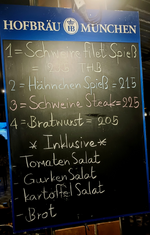 HOFBRÄU HB MÜNCHEN
1 = Schweine Filet Spieß
THB
2 = Hännschen Spieß = 215
3 = Schweine Steak = 225
4 = Bratwurst = 205
* Inklusive *
- Tomaten Salat
- Gurken Salat
- Kartoffel Salat
- Brot